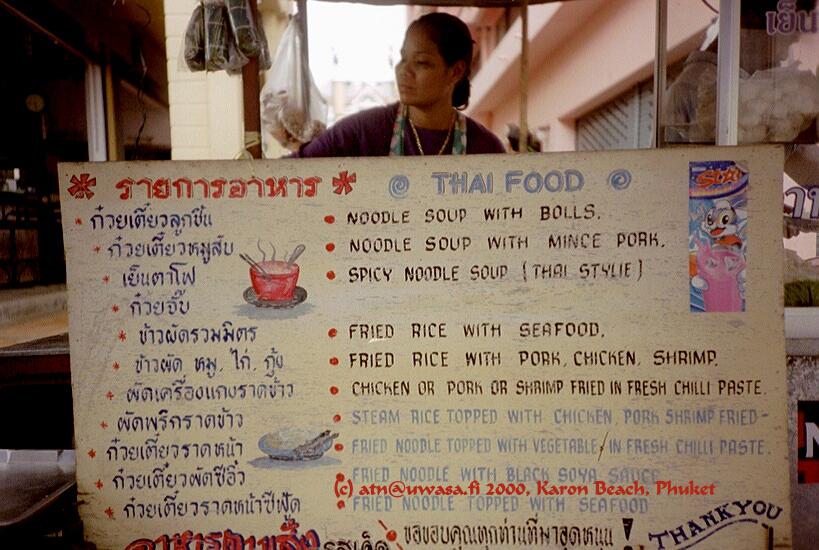 รายการอาหาร THAI FOOD
ก๋วยเตี๋ยวลูกชิ้น
ก๋วยเตี๋ยวหมูสับ
เย็นตาโฟ
ก๋วยจั๊บ
ข้าวผัดรวมมิตร
ข้าวผัด หมู, ไก่, กุ้ง
ผัดเครื่องแกงราดข้าว
ผัดพริกราดข้าว
ก๋วยเตี๋ยวราดหน้า
ก๋วยเตี๋ยวผัดซีอิ๊ว
ก๋วยเตี๋ยวราดหน้า
NOODLE SOUP WITH BOLLS.
NOODLE SOUP WITH MINCE PORK.
SPICY NOODLE SOUP (THAI STYLIE)
FRIED RICE WITH SEAFOOD.
FRIED RICE WITH PORK, CHICKEN, SHRIMP.
CHICKEN OR PORK OR SHRIMP FRIED IN FRESH CHILLI PASTE.
STEAM RICE TOPPED WITH CHICKEN, PORK SHRIMP FRIED-
FRIED NOODLE TOPPED WITH VEGETABLE IN FRESH CHILLI PASTE.
FRIED NOODLE WITH BLACK SOYA SAUCE
(c) atn@uwasa.fi 2000, Karon Beach, Phuket
FRIED NOODLE TOPPED WITH SEAFOOD
อาหารตามสั่ง รสเด็ด ขอขอบคุณทุกท่านที่มาอุดหนุน ! THANKYOU
เย็น